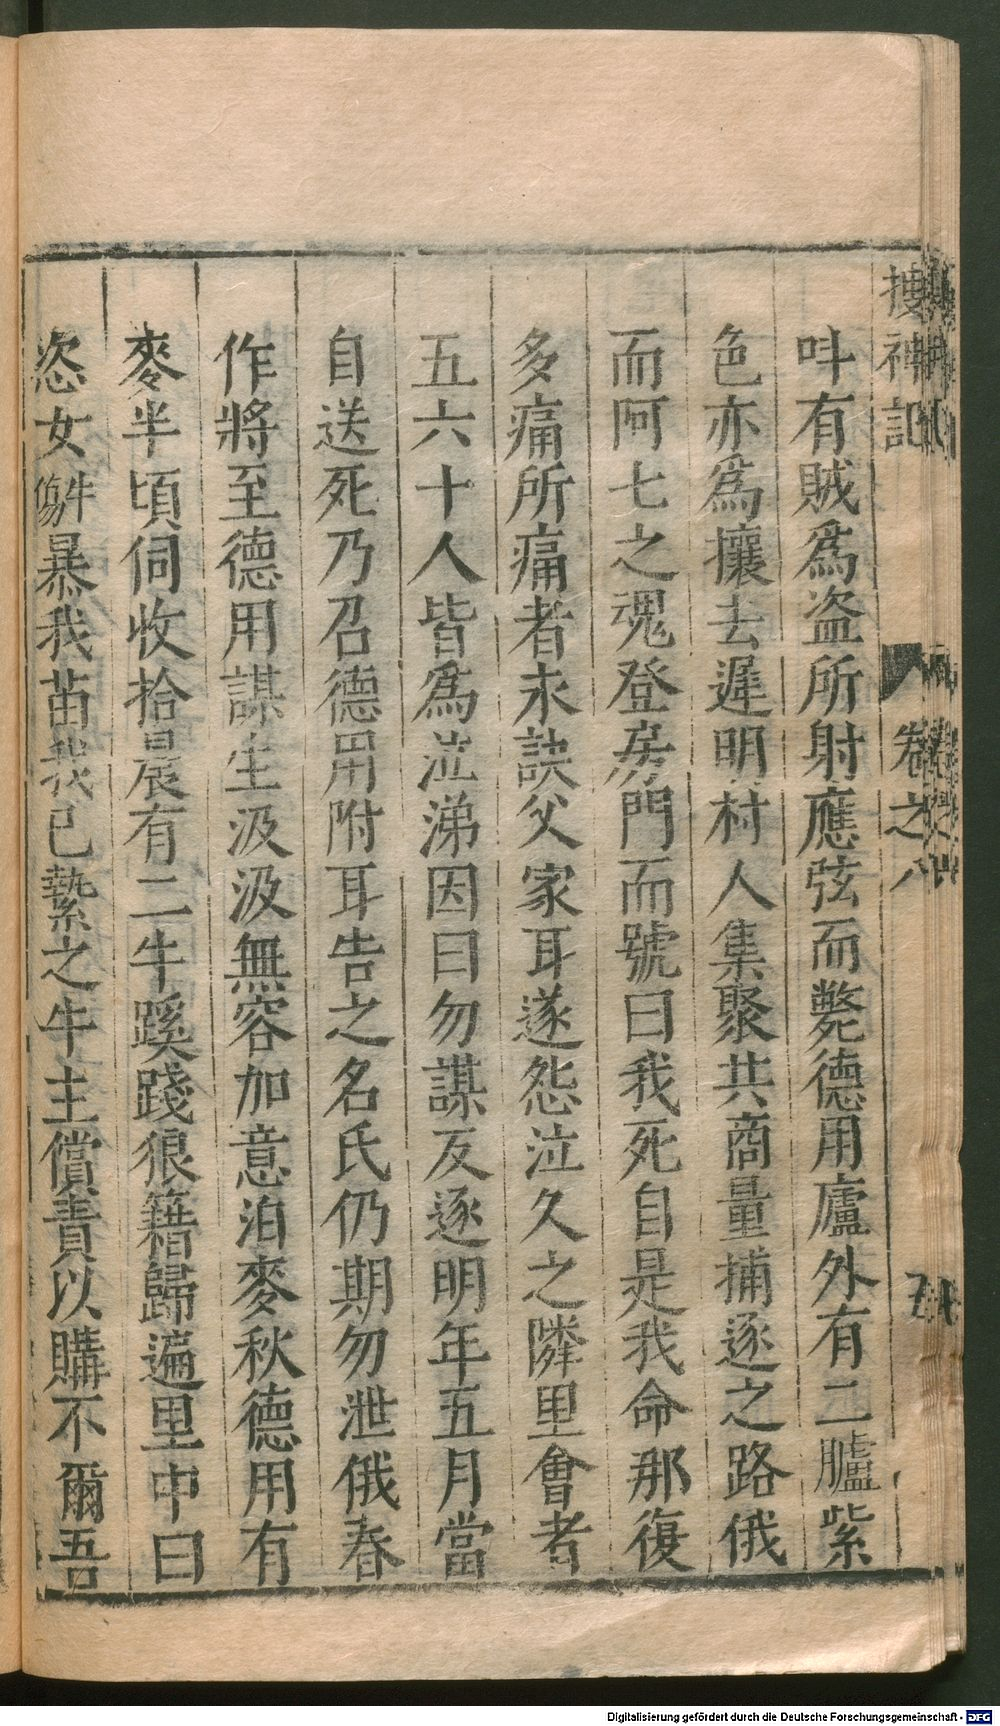 搜神記 卷之八 五
呌有賊爲盜所射應弦而斃德用廬外有二臚紫
色亦爲攘去遲明村人集聚共商量捕逐之路俄
而阿七之魂登房門而號曰我死自是我命那復
多痛所痛者未訣父家耳遂怨泣久之隣里會者
五六十人皆爲泣涕因曰勿謀反逐明年五月當
自送死乃召德用附耳告之名氏仍期勿泄俄春
作將至德用謀生汲汲無容加意洎麥秋德用有
麥半頃伺收拾晨有二牛蹊踐狼籍歸遍里中曰
恣女觧傷暴我苗我已縶之牛主償責以購不爾吾
Digitalisierung gefördert durch die Deutsche Forschungsgemeinschaft - DFG